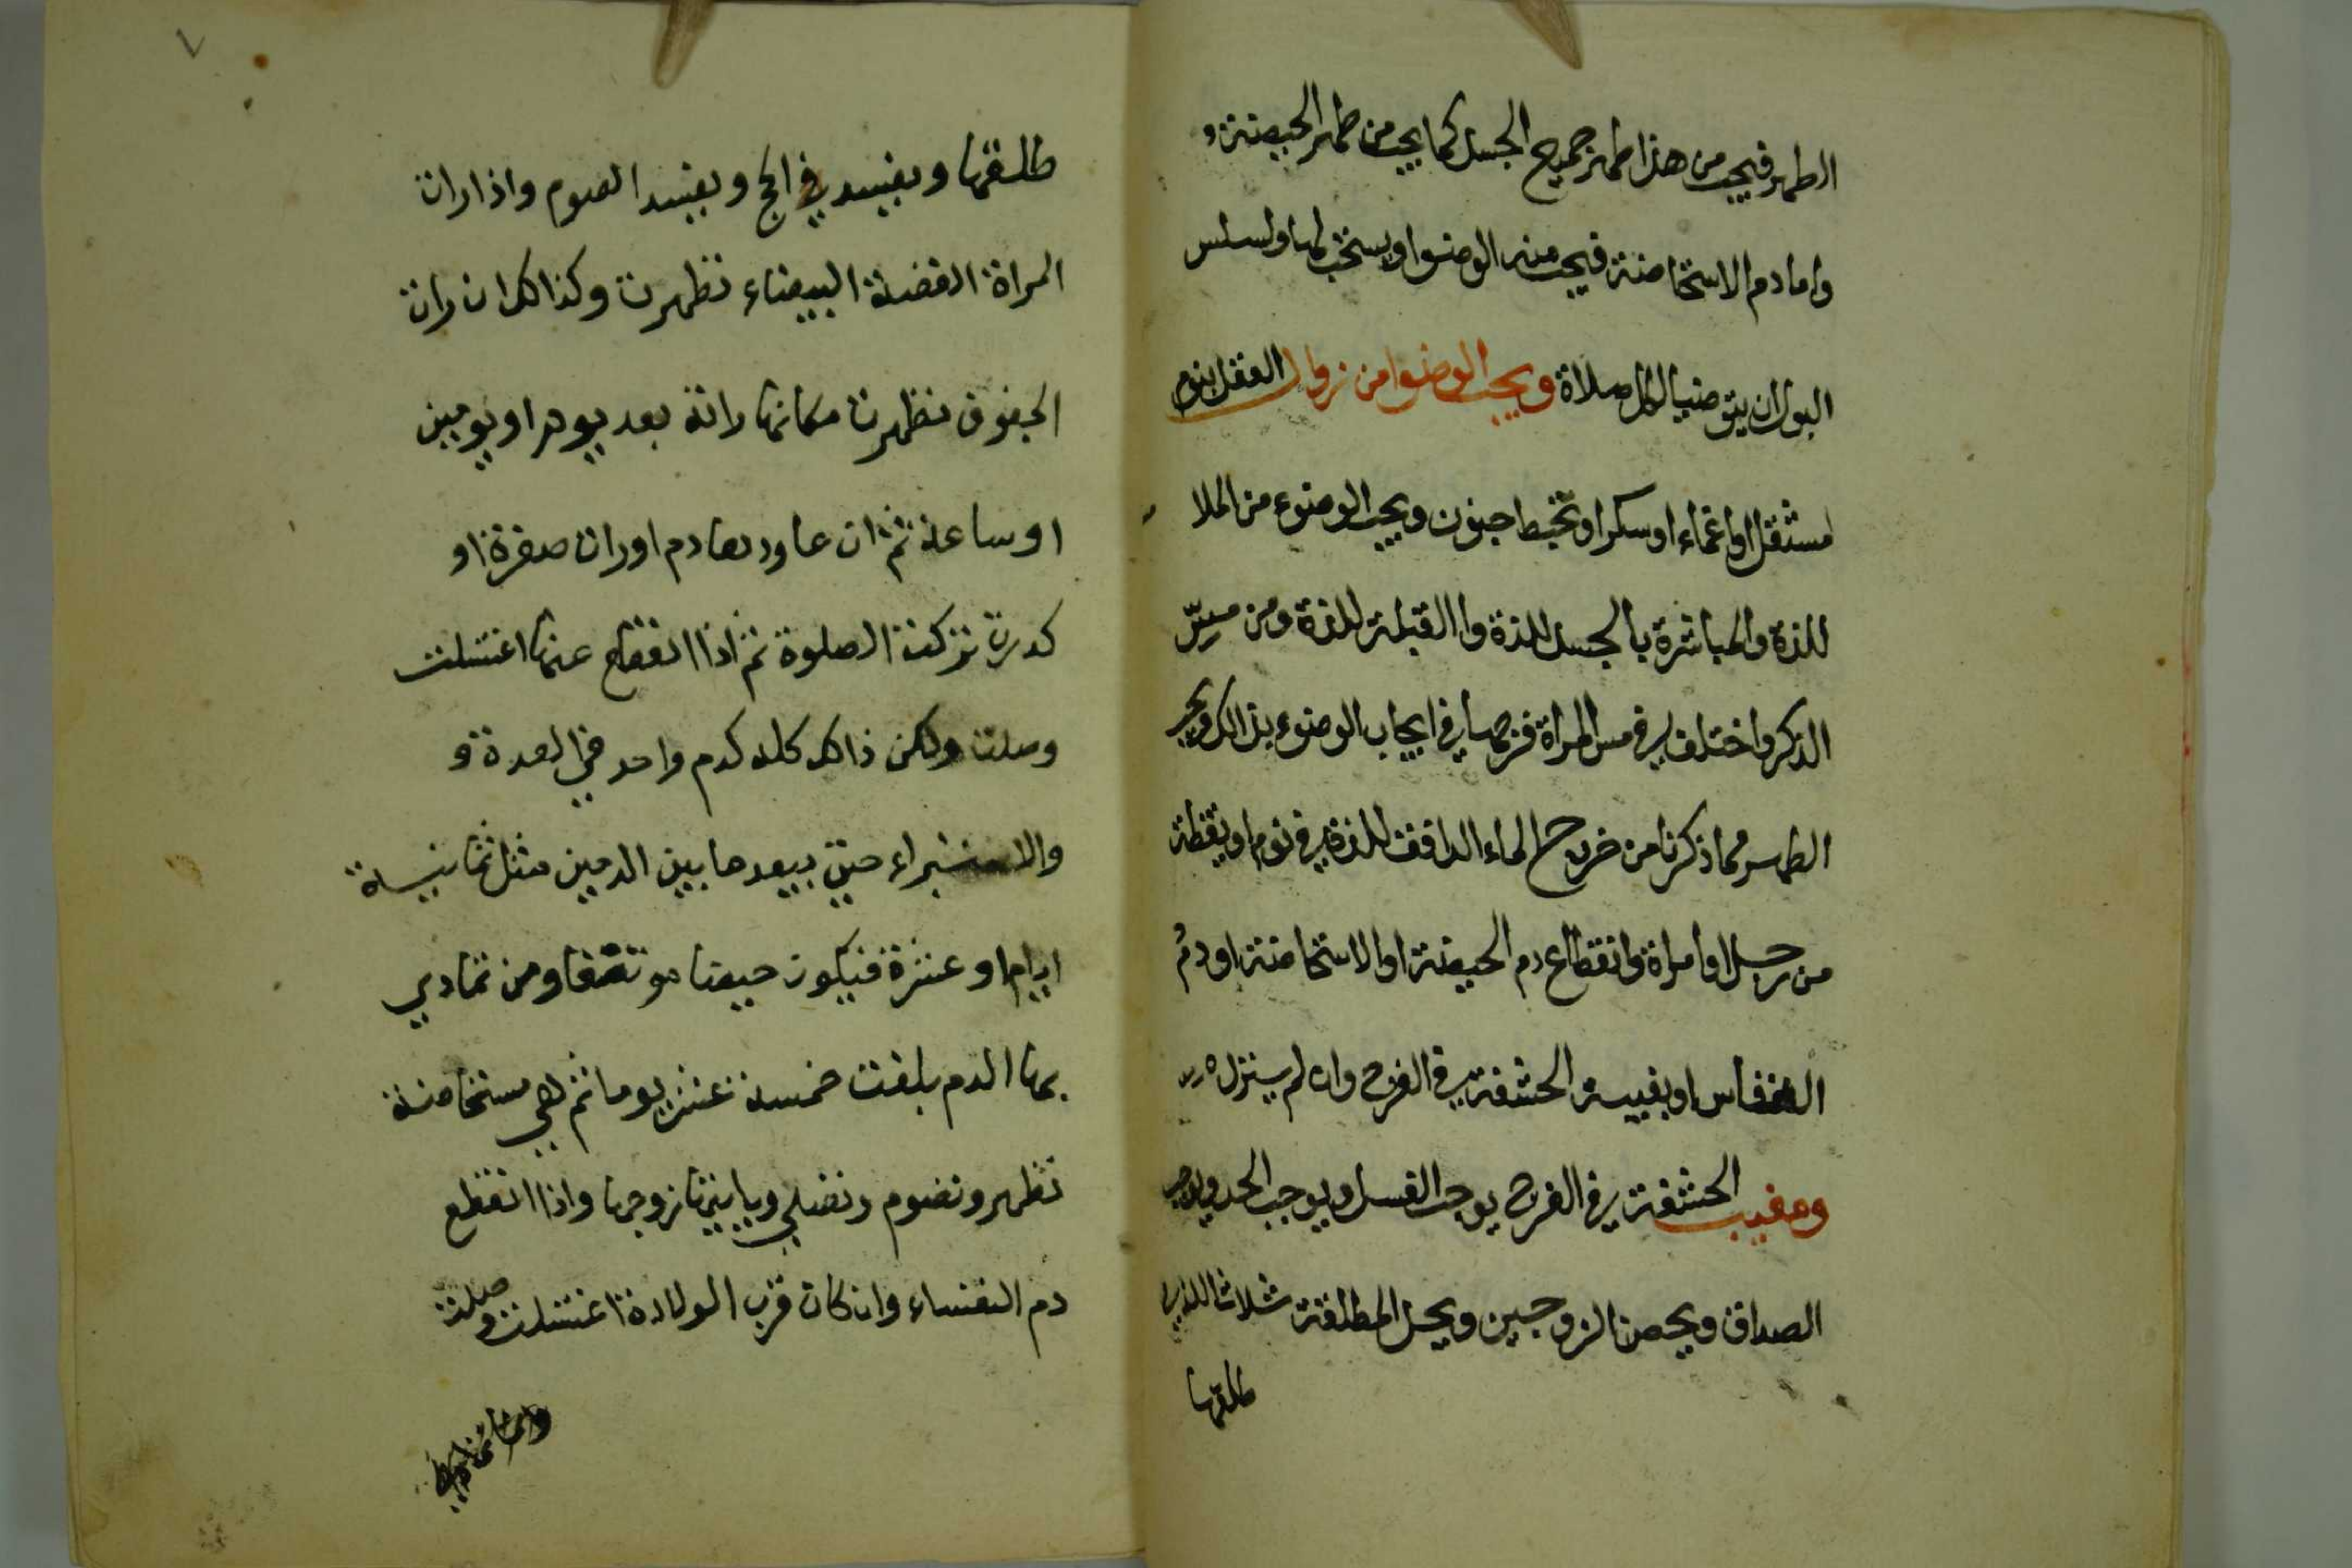 الطهر فيجب من هذا طهر جميع الجسد كما يجب من طهر الحيضة و
واما دم الاستحاضة فيجب منه الوضوا ويستحب لها ولسلس
البول ان يتوضيا لكل صلاة ويجب الوضوا من زوال العقل بنوم
مستثقل او اغماء او سكر او تخبط جنون ويجب الوضوء من الملا
للذة والمباشرة بالجسد للذة واالقبلة للذة ومن مس
الذكر واختلف في مس المراة فرجها في ايجاب الوضوء بذالك ويجب
الطهر مما ذكرنا من خروج الماء الدافق للذة في نوم او يقظة
من رجل او امراة وانقطاع دم الحيضة او الاستحاضة او دم
النفاس او بغيبة الحشفة في الفرج وان لم ينزل
ومغيب الحشفة في الفرج يوجب الغسل ويوجب الحد ويوجب
الصداق ويحصن الزوجين ويحل المطلقة ثلاثا للذي
طلقها
٧
طلقها ويفسد في الحج ويفسد الصوم واذا رات
المراة القضة البيضاء تطهرت وكذالك ان رات
الجفوف تطهرت مكانها راته بعد يوم او يومين
او ساعة ثم ان عاودها دم او رات صفرة او
كدرة تركت الصلوة ثم اذا انقطع عنها اغتسلت
وصلت ولكن ذالك كله كدم واحد في العدة و
والاستبراء حتى يبعد ما بين الدمين مثل ثمانية
ايام او عشرة فيكون حيضا موتنفا ومن تمادي
بها الدم بلغت خمسة عشر يوما ثم هي مستحاضة
تطهر وتصوم وتصلي وياتيها زوجها واذا انقطع
دم النفساء وان كان قرب الولادة اغتسلت وصلت